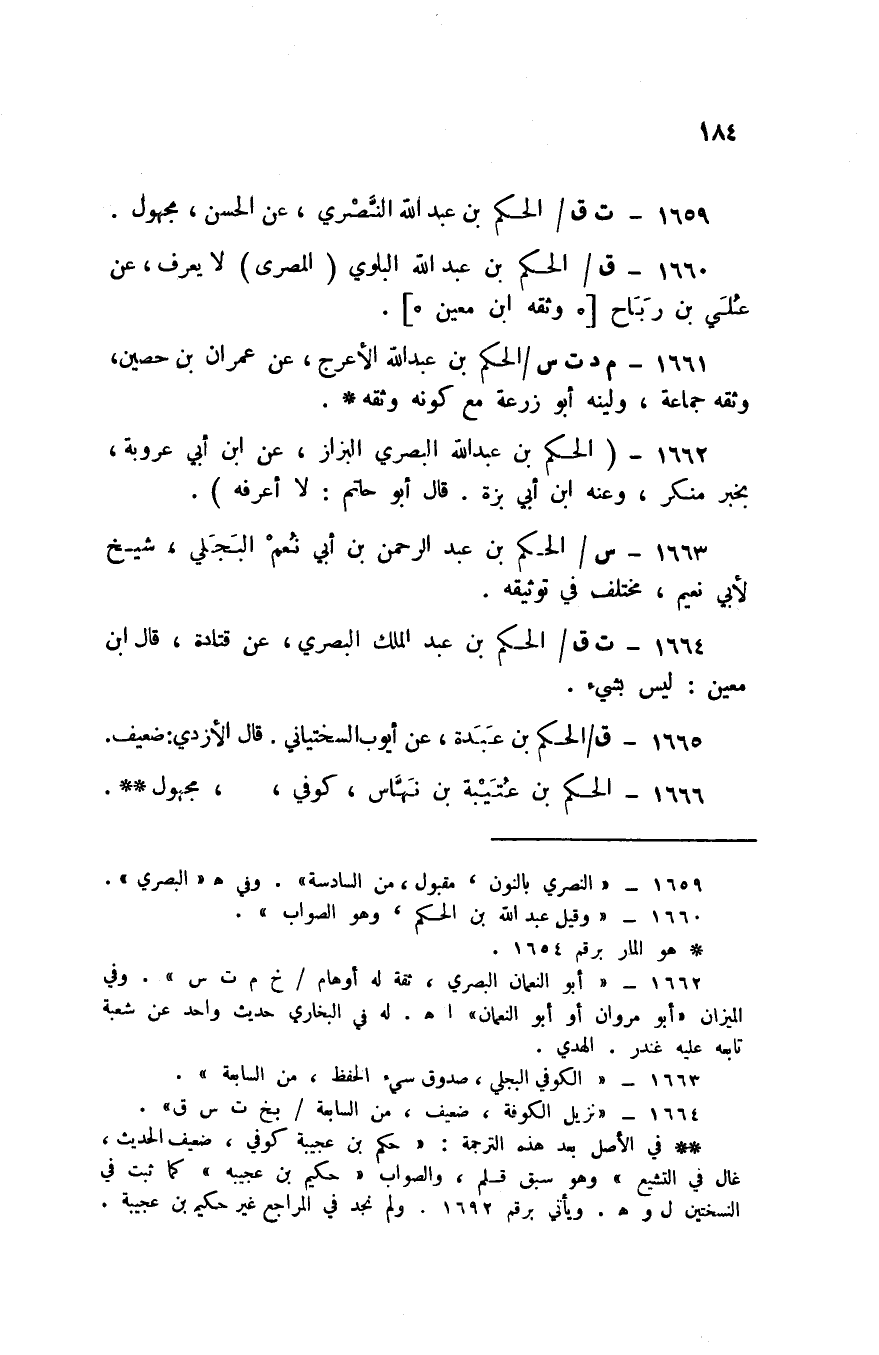 ١٨٤
١٦٥٩ – ت ق / الحكم بن عبد الله النَّصْري ، عن الحسن ، مجهول .
١٦٦٠ – ق / الحكم بن عبد الله البلوي ( المصرى ) لا يعرف ، عن
عُلَي بن رَبَاح [° وثقه ابن معين °] .
١٦٦١ – م د ت س /الحكم بن عبدالله الأعرج ، عن عمران بن حصين،
وثقه جماعة ، ولينه أبو زرعة مع كونه وثقه * .
١٦٦٢ – ( الحكم بن عبدالله البصري البزاز ، عن ابن أبي عروبة ،
بخبر منكر ، وعنه ابن أبي بزة . قال أبو حاتم : لا أعرفه ) .
١٦٦٣ – س / الحكم بن عبد الرحمن بن أبي نُعمْ البَجَلي ، شيخ
لأبي نعيم ، مختلف في توثيقه .
١٦٦٤ – ت ق / الحكم بن عبد الملك البصري ، عن قتادة ، قال ابن
معين : ليس بشيء .
١٦٦٥ – ق/الحكم بن عَبَدة ، عن أيوب السختياني . قال الأزدي:ضعيف.
١٦٦٦ – الحكم بن عُتَيْبة بن نَهَّاس ، كوفي ، ، مجهول ** .
١٦٥٩ – « النصري بالنون ، مقبول ، من السادسة» . وفي ه « البصري » .
١٦٦٠ – « وقيل عبد الله بن الحكم ، وهو الصواب » .
* هو المار برقم ١٦٥٤ .
١٦٦٢ – « أبو النعمان البصري ، ثقة له أوهام / خ م ت س » . وفي
الميزان «أبو مروان أو أبو النعمان» ا ه . له في البخاري حديث واحد عن شعبة
تابعه عليه غندر . الهدي .
١٦٦٣ – « الكوفي البجلي ، صدوق سيء الحفظ ، من السابعة » .
١٦٦٤ – «نزيل الكوفة ، ضعيف ، من السابعة / بخ ت س ق» .
** في الأصل بعد هذه الترجمة : « حكم بن عجيبة كوفي ، ضعيف الحديث ،
غال في التشيع » وهو سبق قلم ، والصواب « حكيم بن عجيبه » كما ثبت في
النسختين ل و ه . ويأتي برقم ١٦٩٢ . ولم نجد في المراجع غير حكيم بن عجيبة .